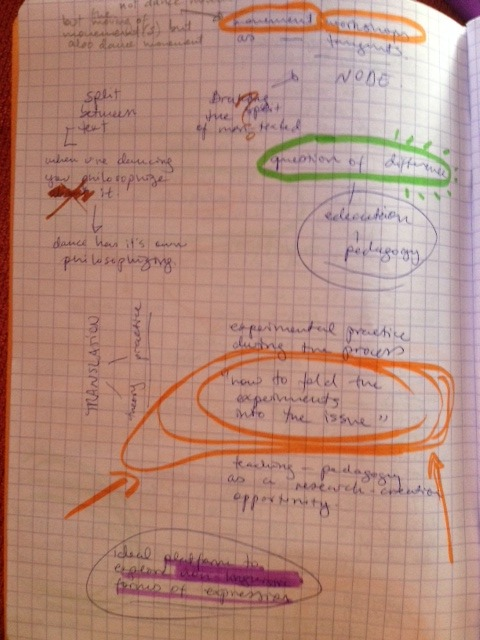 not dance
but
movement(s) but
also dance movement
movement workshops
as tangents
NODE
split
between
text
the split
of
when one dancing
you philosophize
it
question of difference
education
pedagogy
dance has it's own
philosophizing.
TRANSLATION
theory practice
experimental practice
during the process
"how to fold the
experiments
into the issue"
teaching - pedagogy
as a research-creation
opportunity.
ideal platform to
explore non-linguistic
forms of expression